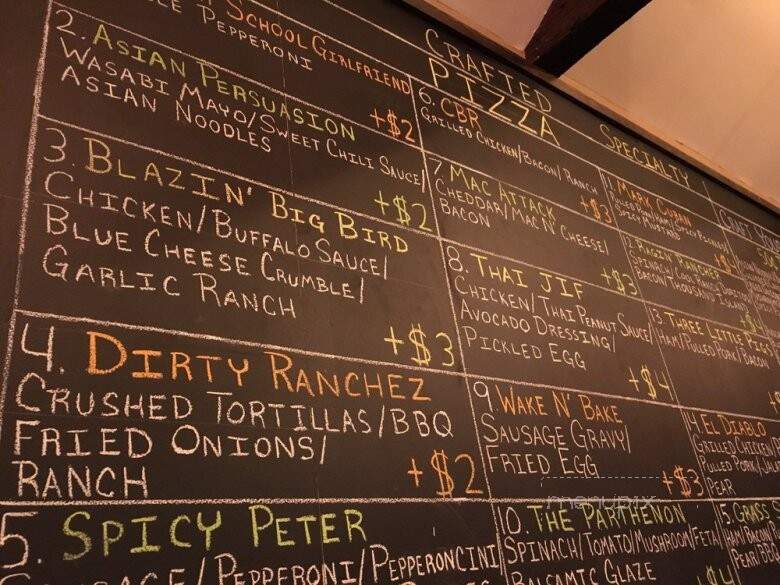 SCHOOL GIRLFRIEND
PEPPERONI
2. ASIAN PERSUASION
WASABI MAYO/SWEET CHILI SAUCE/
ASIAN NOODLES
+$2
3. BLAZIN' BIG BIRD
+$2
CHICKEN/BUFFALO SAUCE/
BLUE CHEESE CRUMBLE/
GARLIC RANCH
+$3
4. DIRTY RANCHEZ
CRUSHED TORTILLAS/BBQ
FRIED ONIONS/
RANCH
+$2
5. SPICY PETER
/PEPPERONI/PEPPERONCINI
CRAFTED
PIZZA
6. CBR
GRILLED CHICKEN/BACON/RANCH
+$3
7 MAC ATTACK
CHEDDAR/MAC N' CHEESE/
BACON
+$3
8. THAI JIF
CHICKEN/THAI PEANUT SAUCE/
AVOCADO DRESSING/
PICKLED EGG
+$4
9. WAKE N' BAKE
SAUSAGE GRAVY/
FRIED EGG
+$3
10. THE PARTHENON
SPINACH/TOMATO/MUSHROOM/FETA/
BALSAMIC GLAZE
SPECIALTY
1. MARK CUBAN
SPICY MUSTARD
2. RAGIN' RANCHER
3. THREE LITTLE PIGS
HAM/PULLED PORK/BACON
4. EL DIABLO
GRILLED CHICKEN
PULLED PORK/
PEAR
5. GRASS
HAM/BACON
menupix